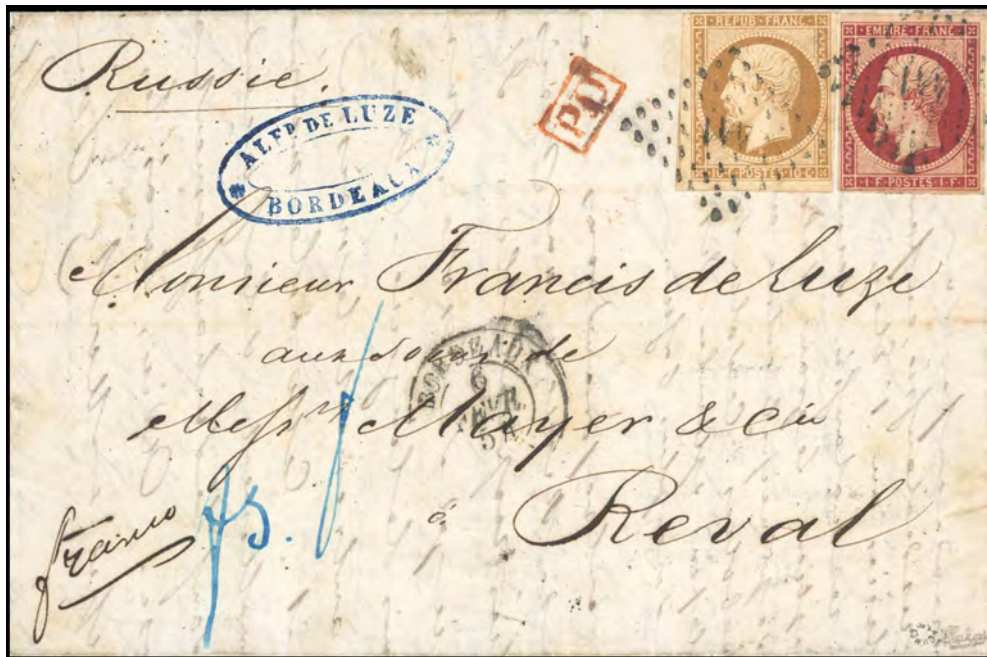 Russie.
ALFD DE LUZE
BORDEAUX
P.D.
REPUB. FRANC.
10 C. POSTES 10 C.
EMPIRE FRANC.
1 F. POSTES 1 F.
Monsieur Francis de Luze
aux soins de
BORDEAUX
6
FEVR.
Messrs Mayer & Cie
à
Reval
Franco